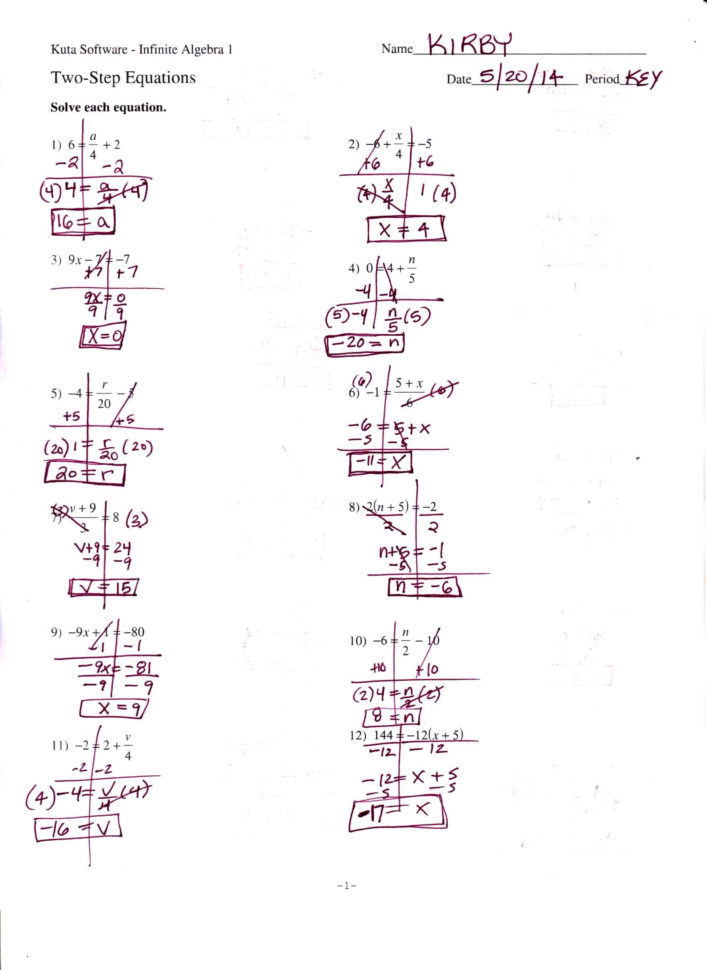 Kuta Software - Infinite Algebra 1
Name KIRBY
Two-Step Equations
Date 5/20/14 Period KEY
Solve each equation.
1) 6 = a/4 + 2
-2 -2
(4) 4 = a/4 (4)
16 = a
2) -6 + x/4 = -5
+6 +6
(4) x/4 1 (4)
x = 4
3) 9x - 7 = -7
+7 +7
9x/9 = 0/9
x = 0
4) 0 = 4 + n/5
-4 -4
(5) -4 n/5 (5)
-20 = n
5) -4 = r/20 - 5
+5 +5
(20) 1 = r/20 (20)
20 = r
(6) 6) -1 = (5 + x)/6 (6)
-6 = 5 + x
-5 -5
-11 = x
7) (3) (v + 9)/3 = 8 (3)
v+9 = 24
-9 -9
v = 15
8) 2(n + 5)/2 = -2/2
n+5 = -1
-5 -5
n = -6
9) -9x + 1 = -80
-1 -1
-9x/-9 = -81/-9
x = 9
10) -6 = n/2 - 10
+10 +10
(2) 4 = n/2 (2)
8 = n
11) -2 = 2 + v/4
-2 -2
(4) -4 = v/4 (4)
-16 = v
12) 144 = -12(x + 5)
-12 -12
-12 = x + 5
-5 -5
-17 = x
-1-